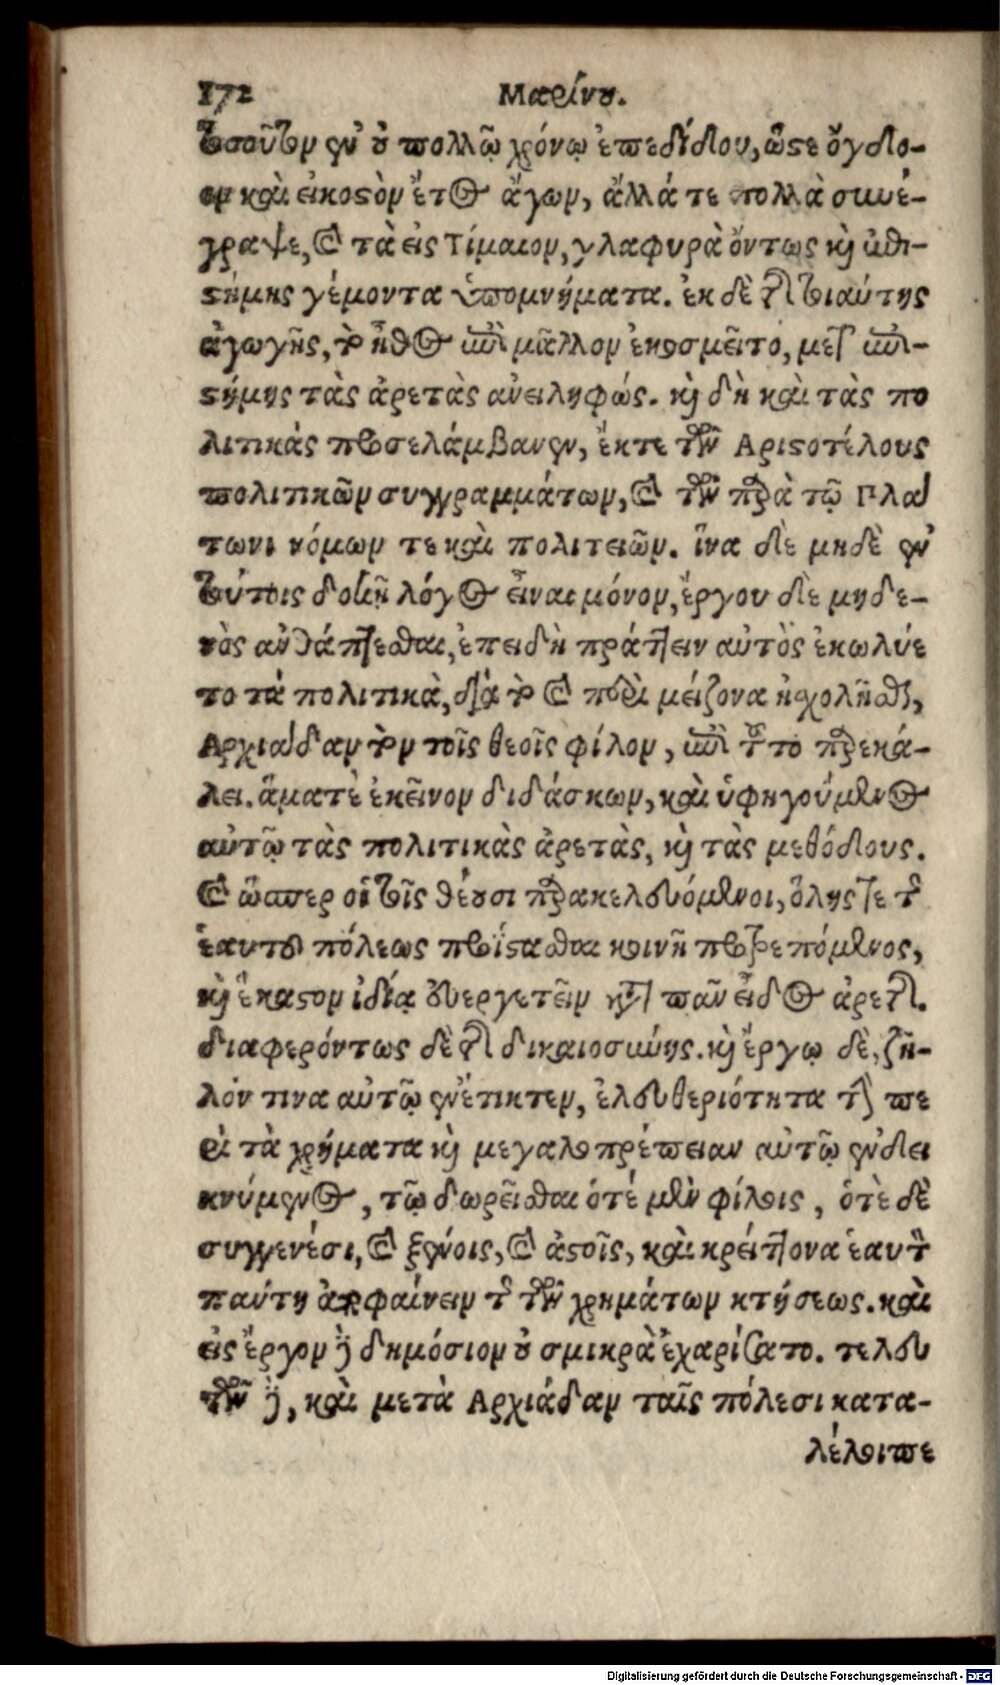 172 Μαρίνου.
τοσοῦτον ἐν οὐ πολλῷ χρόνῳ ἐπεδίδου, ὥστε ὄγδο-
ον καὶ εἰκοστὸν ἔτος ἄγων, ἄλλά τε πολλὰ συνέ-
γραψε, καὶ τὰ εἰς Τίμαιον, γλαφυρὰ ὄντως καὶ ἐπι-
στήμης γέμοντα ὑπομνήματα. ἐκ δὲ τῆς τοιαύτης
ἀγωγῆς, τὸ ἦθος ἐπὶ μᾶλλον ἐκοσμεῖτο, μετ' ἐπι-
στήμης τὰς ἀρετὰς ἀνειληφώς. καὶ δὴ καὶ τὰς πο
λιτικὰς προσελάμβανεν, ἔκ τε τῶν Αριστοτέλους
πολιτικῶν συγγραμμάτων, καὶ τῶν παρὰ τῷ Πλά
τωνι νόμων τε καὶ πολιτειῶν. ἵνα δὲ μηδὲ ἐν
τούτοις δοκῇ λόγος εἶναι μόνον, ἔργου δὲ μηδε-
νὸς ἀνθάπτεσθαι, ἐπειδὴ πράττειν αὐτὸς ἐκωλύε
το τὰ πολιτικὰ, διὰ τὸ καὶ περὶ μείζονα ἠσχολῆσθαι,
Αρχιάδαν τὸν τοῖς θεοῖς φίλον, ἐπὶ τοῦτο παρεκά-
λει. ἅμα τὲ ἐκεῖνον διδάσκων, καὶ ὑφηγούμενος
αὐτῷ τὰς πολιτικὰς ἀρετὰς, καὶ τὰς μεθόδους.
καὶ ὥσπερ οἱ τοῖς θέουσι παρακελευόμενοι, ὅλης τε τῆς
ἑαυτοῦ πόλεως προΐστασθαι κοινῇ προτρεπόμενος,
καὶ ἕκαστον ἰδίᾳ εὐεργετεῖν κατὰ πᾶν εἶδος ἀρετῆς.
διαφερόντως δὲ τῆς δικαιοσύνης. καὶ ἔργῳ δὲ, ζῆ-
λόν τινα αὐτῷ ἐνέτικτεν, ἐλευθεριότητα τὴν πε
ρὶ τὰ χρήματα καὶ μεγαλοπρέπειαν αὐτῷ ἐνδει
κνύμενος, τῷ δωρεῖσθαι ὁτὲ μὲν φίλοις, ὁτὲ δὲ
συγγενέσι, καὶ ξένοις, καὶ ἀστοῖς, καὶ κρείττονα ἑαυτὸν
παύτη ἀποφαίνειν τῆς τῶν χρημάτων κτήσεως. καὶ
εἰς ἔργον δὲ δημόσιον οὐ σμικρὰ ἐχαρίσατο. τελευ
τῶν δὲ, καὶ μετὰ Αρχιάδαν ταῖς πόλεσι κατα-
λέλοιπε
Digitalisierung gefördert durch die Deutsche Forschungsgemeinschaft - DFG